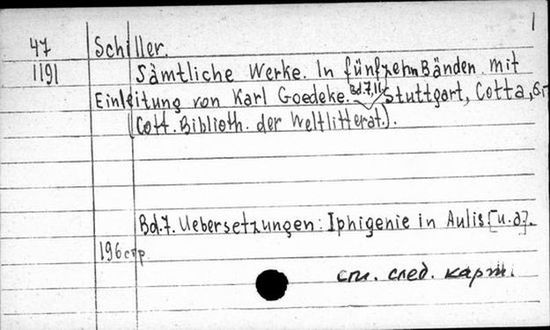 1
47 Schiller.
1191 Sämtliche Werke. In fünfzehn Bänden mit
Einleitung von Karl Goedeke. Bd.7,11 Stuttgart, Cotta,
(Cott. Biblioth. der Weltlitterat.).
Bd.7. Uebersetzungen: Iphigenie in Aulis [u.a].
196 стр
см. след. карт.